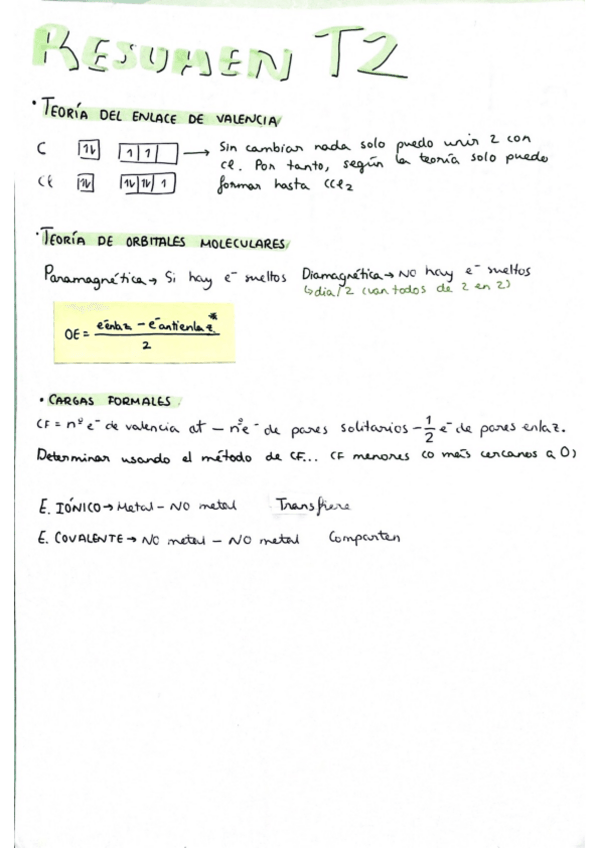 RESUMEN T2
· TEORÍA DEL ENLACE DE VALENCIA
C 1↓ 1 1 → Sin cambiar nada solo puedo unir 2 con
Cl 1↓ 1↓ 1↓ 1 Cl. Por tanto, según la teoría solo puedo
formar hasta CCl2
· TEORÍA DE ORBITALES MOLECULARES
Paramagnética → Si hay e⁻ sueltos Diamagnética → NO hay e⁻ sueltos
↳ dia/2 (van todos de 2 en 2)
OE = e⁻enlaz − e⁻antienlaz* / 2
· CARGAS FORMALES.
CF = nº e⁻ de valencia at − nº e⁻ de pares solitarios − 1/2 e⁻ de pares enlaz.
Determinar usando el método de CF... CF menores (o más cercanos a 0)
E. IÓNICO → Metal − NO metal Transfiere
E. COVALENTE → NO metal − NO metal Comparten